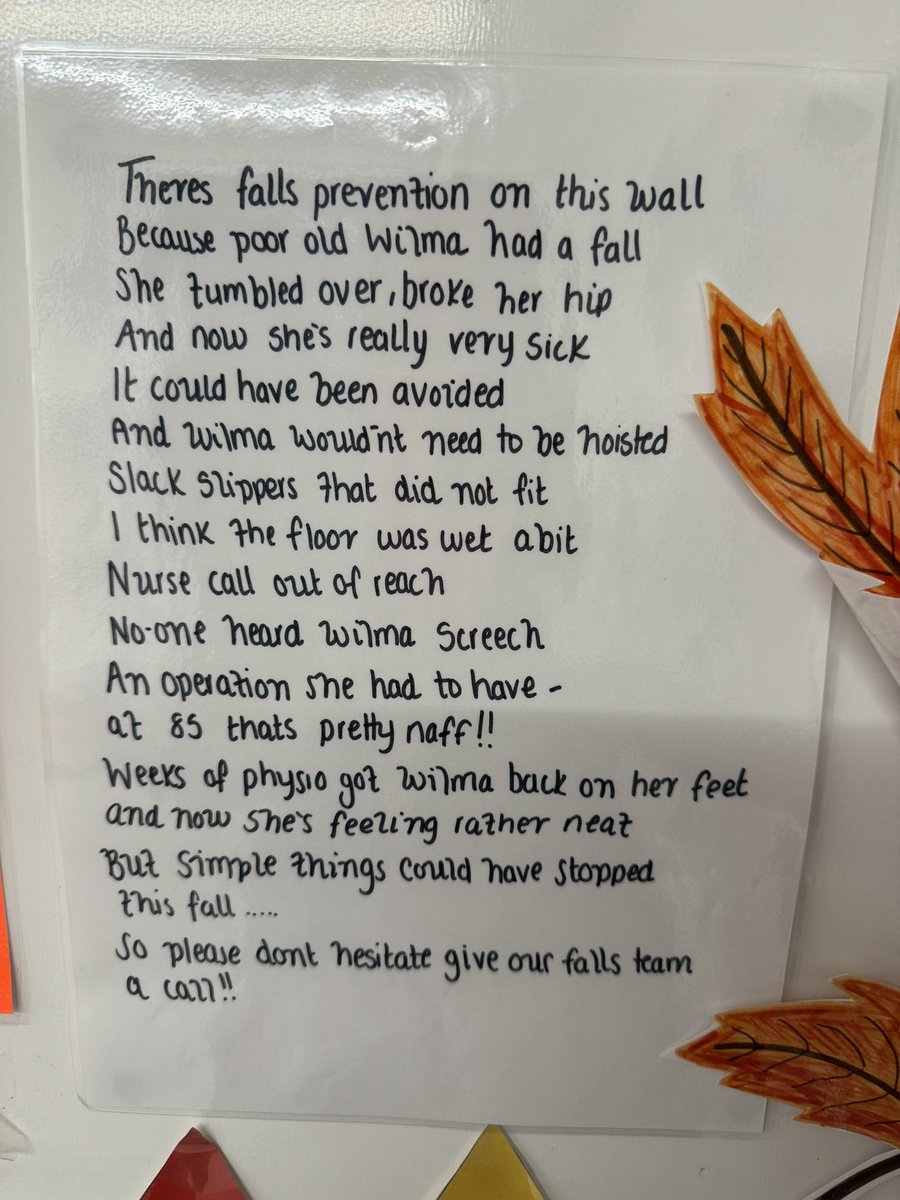 Theres falls prevention on this wall
Because poor old Wilma had a fall
She tumbled over, broke her hip
And now she's really very sick
It could have been avoided
And Wilma would'nt need to be hoisted
Slack slippers that did not fit
I think the floor was wet abit
Nurse call out of reach
No-one heard Wilma Screech
An operation she had to have -
at 85 thats pretty naff!!
Weeks of physio got Wilma back on her feet
and now she's feeling rather neat
But simple things could have stopped
this fall .....
So please dont hesitate give our falls team
a call!!